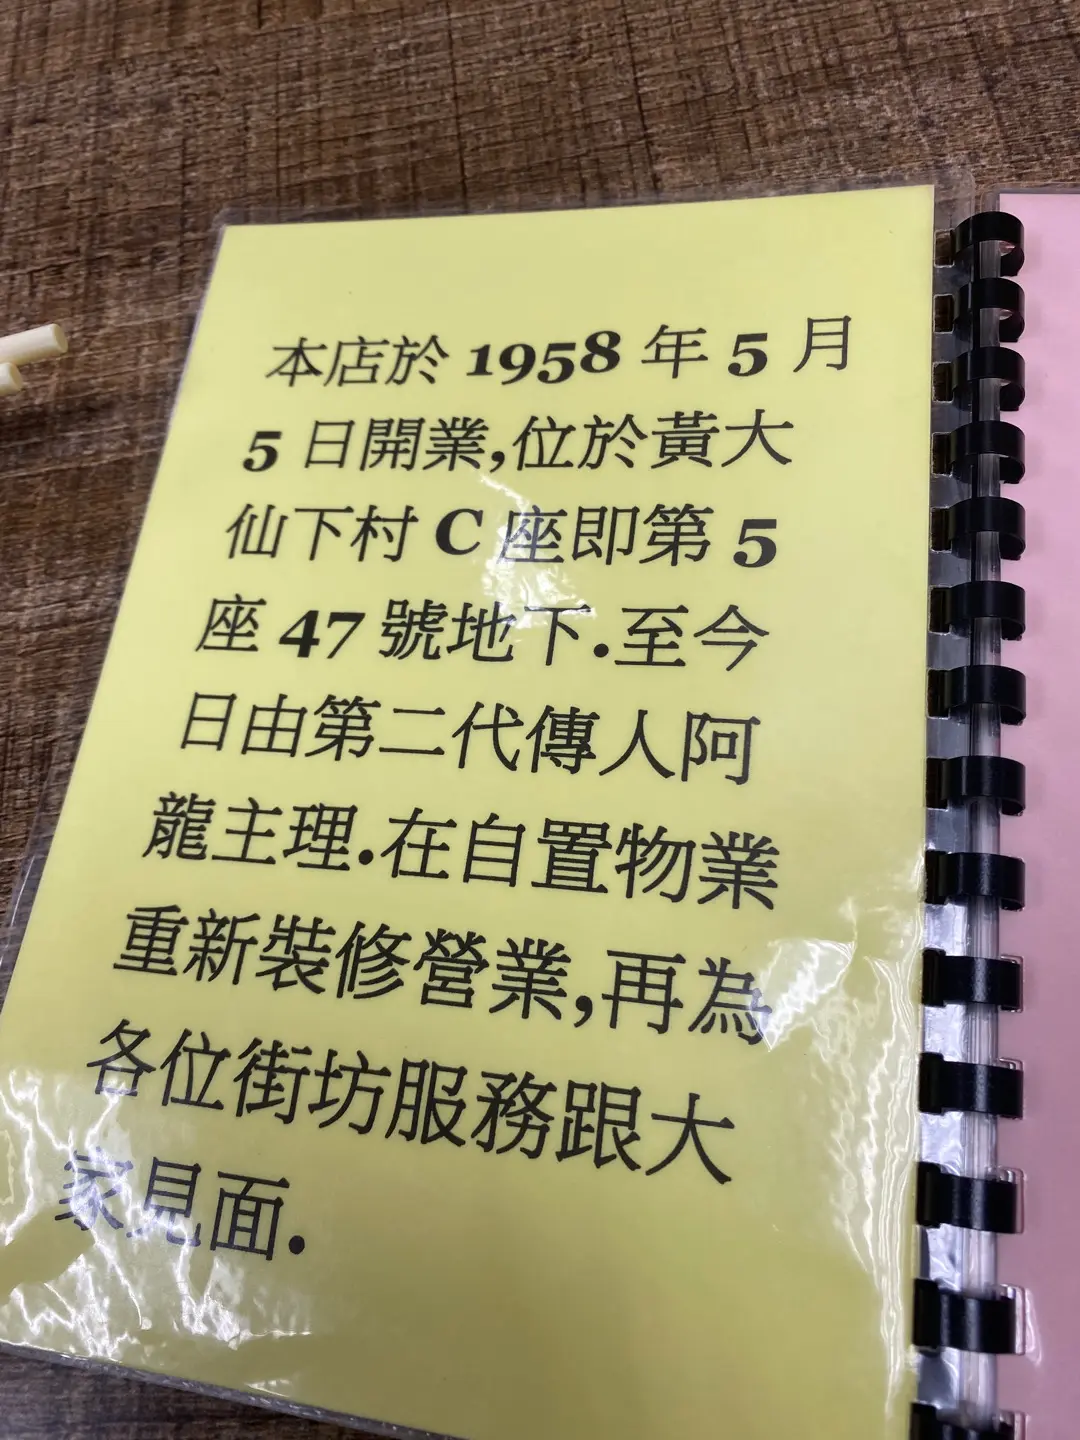 本店於 1958 年 5 月
5 日開業,位於黃大
仙下村 C 座即第 5
座 47 號地下.至今
日由第二代傳人阿
龍主理.在自置物業
重新裝修營業,再為
各位街坊服務跟大
家見面.